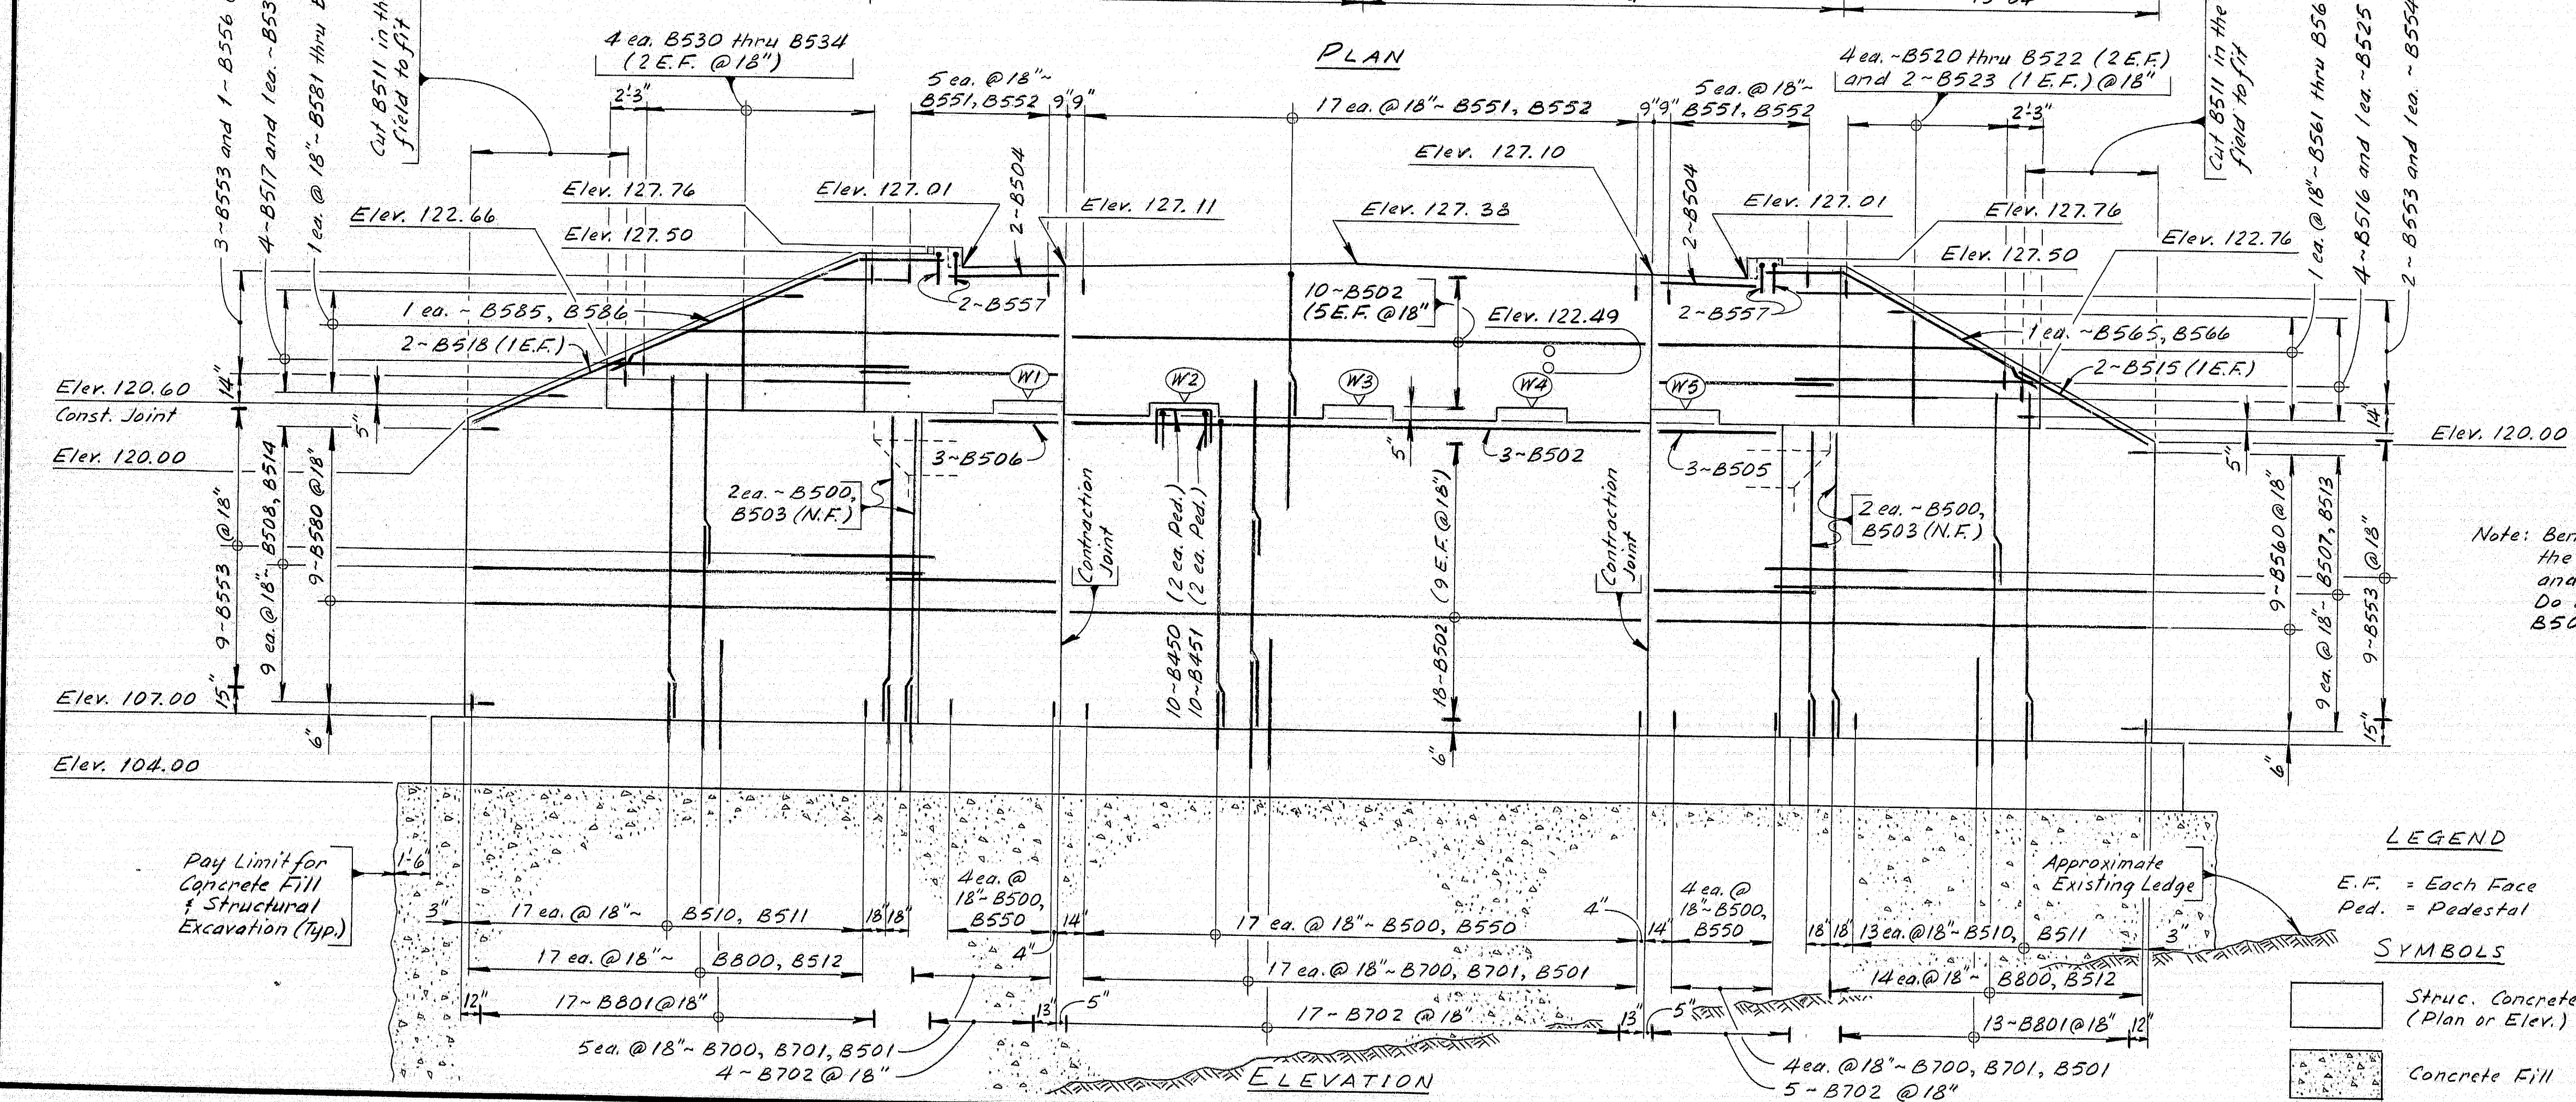 PLAN
3~B553 and 1~B556
4~B517 and 1ea.~B53
1ea. @ 18"~B581 thru
Cut B511 in the
field to fit
4 ea. B530 thru B534
(2 E.F. @18")
2'-3"
5 ea. @18"~
B551, B552
9" 9"
17 ea. @ 18"~ B551, B552
9" 9"
5 ea. @ 18"~
B551, B552
4 ea.~B520 thru B522 (2 E.F.)
and 2~B523 (1 E.F.) @18"
2'-3"
Cut B511 in the
field to fit
1 ea. @ 18"~B561 thru B56
4~B516 and 1 ea.~B525
2~B553 and 1ea.~B554
Elev. 127.10
Elev. 127.76
Elev. 127.01
2~B504
Elev. 127.11
Elev. 127.38
2~B504
Elev. 127.01
Elev. 127.76
Elev. 122.66
Elev. 127.50
Elev. 127.50
Elev. 122.76
2~B557
10~B502
(5 E.F. @18"
Elev. 122.49
2~B557
1 ea. ~ B585, B586
2~B518 (1 E.F.)
1 ea. ~B565, B566
2~B515 (1 E.F.)
Elev. 120.60
Const. Joint
Elev. 120.00
14"
5"
W1
W2
W3
W4
W5
5"
14"
5"
Elev. 120.00
3~B506
3~B502
3~B505
2 ea.~B500,
B503 (N.F.)
2 ea. ~B500,
B503 (N.F.)
Contraction
Joint
Contraction
Joint
9~B553 @ 18"
9 ea. @ 18"~ B508, B514
9~B580 @18"
10~B450 (2 ea. Ped.)
10~B451 (2 ea. Ped.)
18~B502 (9 E.F. @ 18")
9~B560 @ 18"
9 ea. @ 18"~B507, B513
9~B553 @ 18"
Note:
the
and
Do
Elev. 107.00
15"
6"
6"
6"
15"
Elev. 104.00
Pay Limit for
Concrete Fill
& Structural
Excavation (Typ.)
1'-6"
3"
17 ea. @ 18"~ B510, B511
18" 18"
4 ea. @
18"~B500,
B550
4"
14"
17 ea. @ 18"~ B500, B550
4"
14"
4 ea. @
18"~B500,
B550
18" 18"
13 ea. @ 18"~B510, B511
3"
Approximate
Existing Ledge
17 ea. @ 18"~ B800, B512
17 ea. @ 18"~B700, B701, B501
14 ea. @ 18"~ B800, B512
12"
17~B801 @ 18"
13"
5"
17~B702 @ 18"
13"
5"
13~B801 @ 18"
12"
5 ea. @ 18"~ B700, B701, B501
4~B702 @ 18"
4 ea. @ 18"~B700, B701, B501
5~B702 @ 18"
ELEVATION
LEGEND
E.F. = Each Face
Ped. = Pedestal
SYMBOLS
Struc. Concrete
(Plan or Elev.)
Concrete Fill